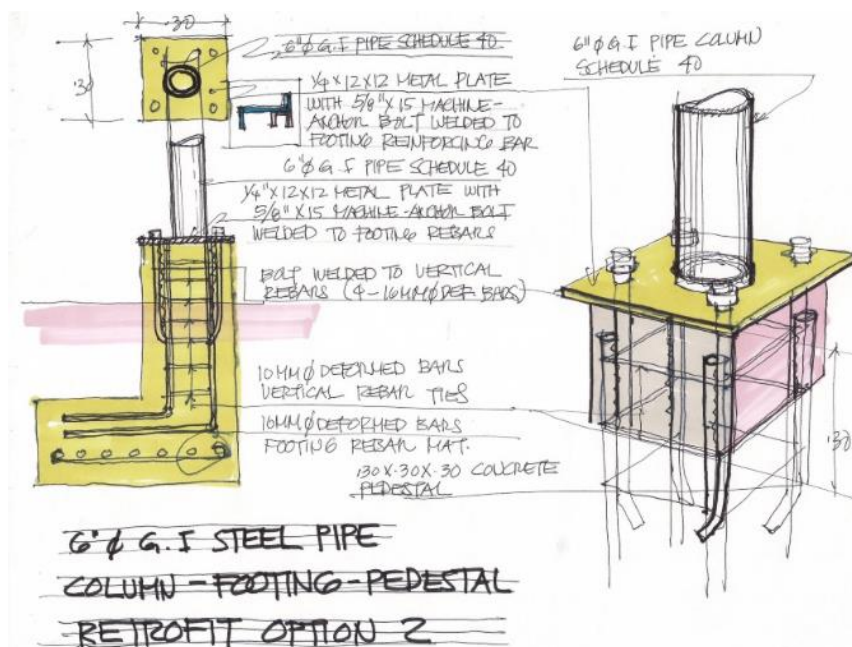 .30
.30
6"Ø G.I PIPE SCHEDULE 40
1/4 x 12 x 12 METAL PLATE
WITH 5/8" X 15 MACHINE-
ANCHOR BOLT WELDED TO
FOOTING REINFORCING BAR
6"Ø G.I PIPE SCHEDULE 40
1/4" X 12 X 12 METAL PLATE WITH
5/8" X 15 MACHINE-ANCHOR BOLT
WELDED TO FOOTING REBARS
BOLT WELDED TO VERTICAL
REBARS (4-16MMØ DEF. BARS)
10MMØ DEFORMED BARS
VERTICAL REBAR TIES
16MMØ DEFORMED BARS
FOOTING REBAR MAT.
.30 X .30 X .30 CONCRETE
PEDESTAL
6"Ø G.I PIPE COLUMN
SCHEDULE 40
.30
6"Ø G.I STEEL PIPE
COLUMN-FOOTING-PEDESTAL
RETROFIT OPTION 2